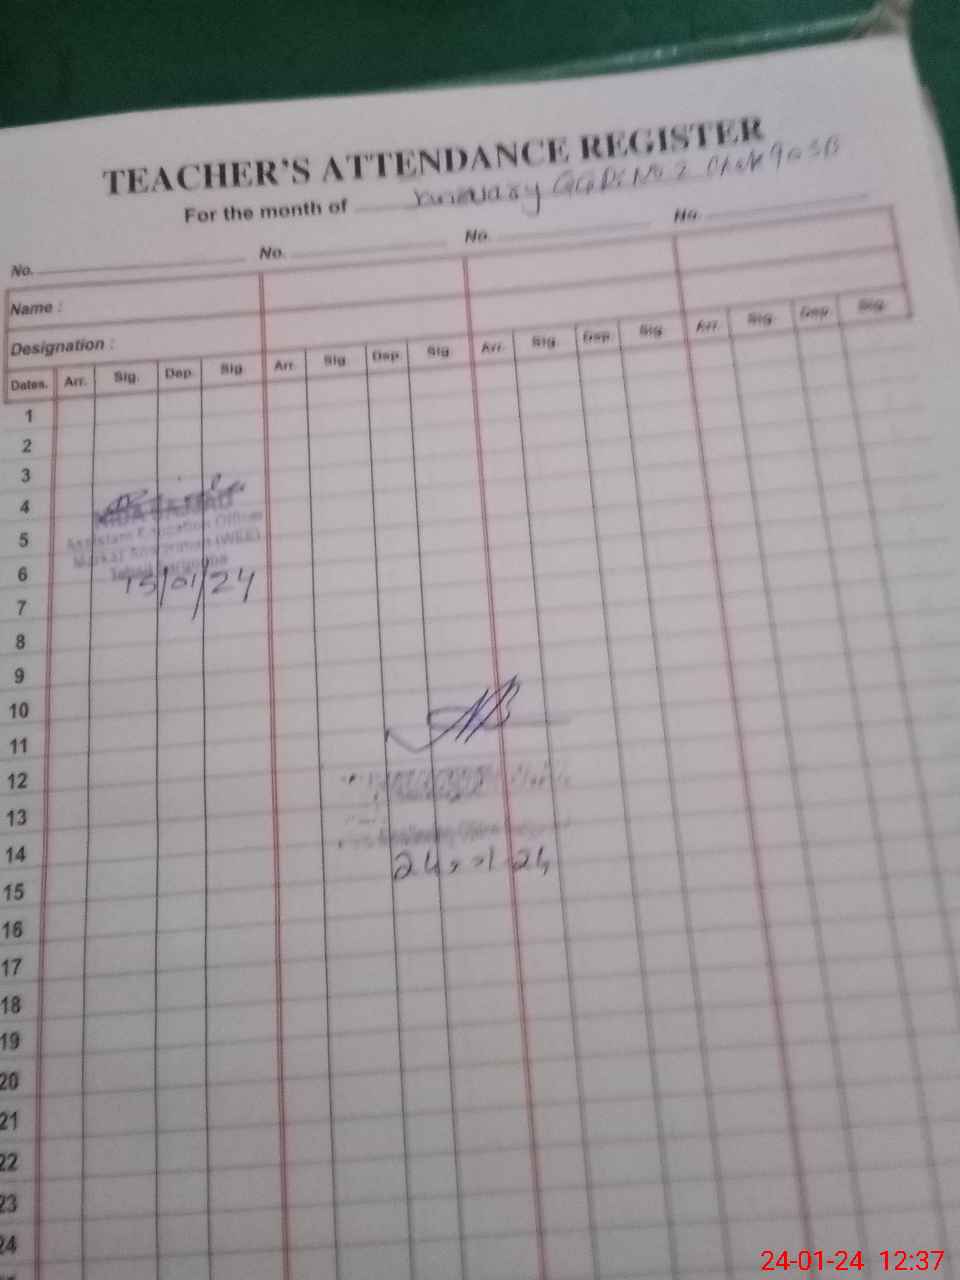 TEACHER'S ATTENDANCE REGISTER
For the month of January
No. No. No. No.
Name :
Designation :
Dates. Arr. Sig. Dep. Sig Arr. Sig Dep. Sig Arr. Sig. Dep. Sig Arr. Sig. Dep. Sig.
1
2
3
4
Assistant Education Officer
5
(WEE)
6
15/01/24
7
8
9
10
11
12
13
14
24
15
16
17
18
19
20
21
22
23
24
24-01-24 12:37